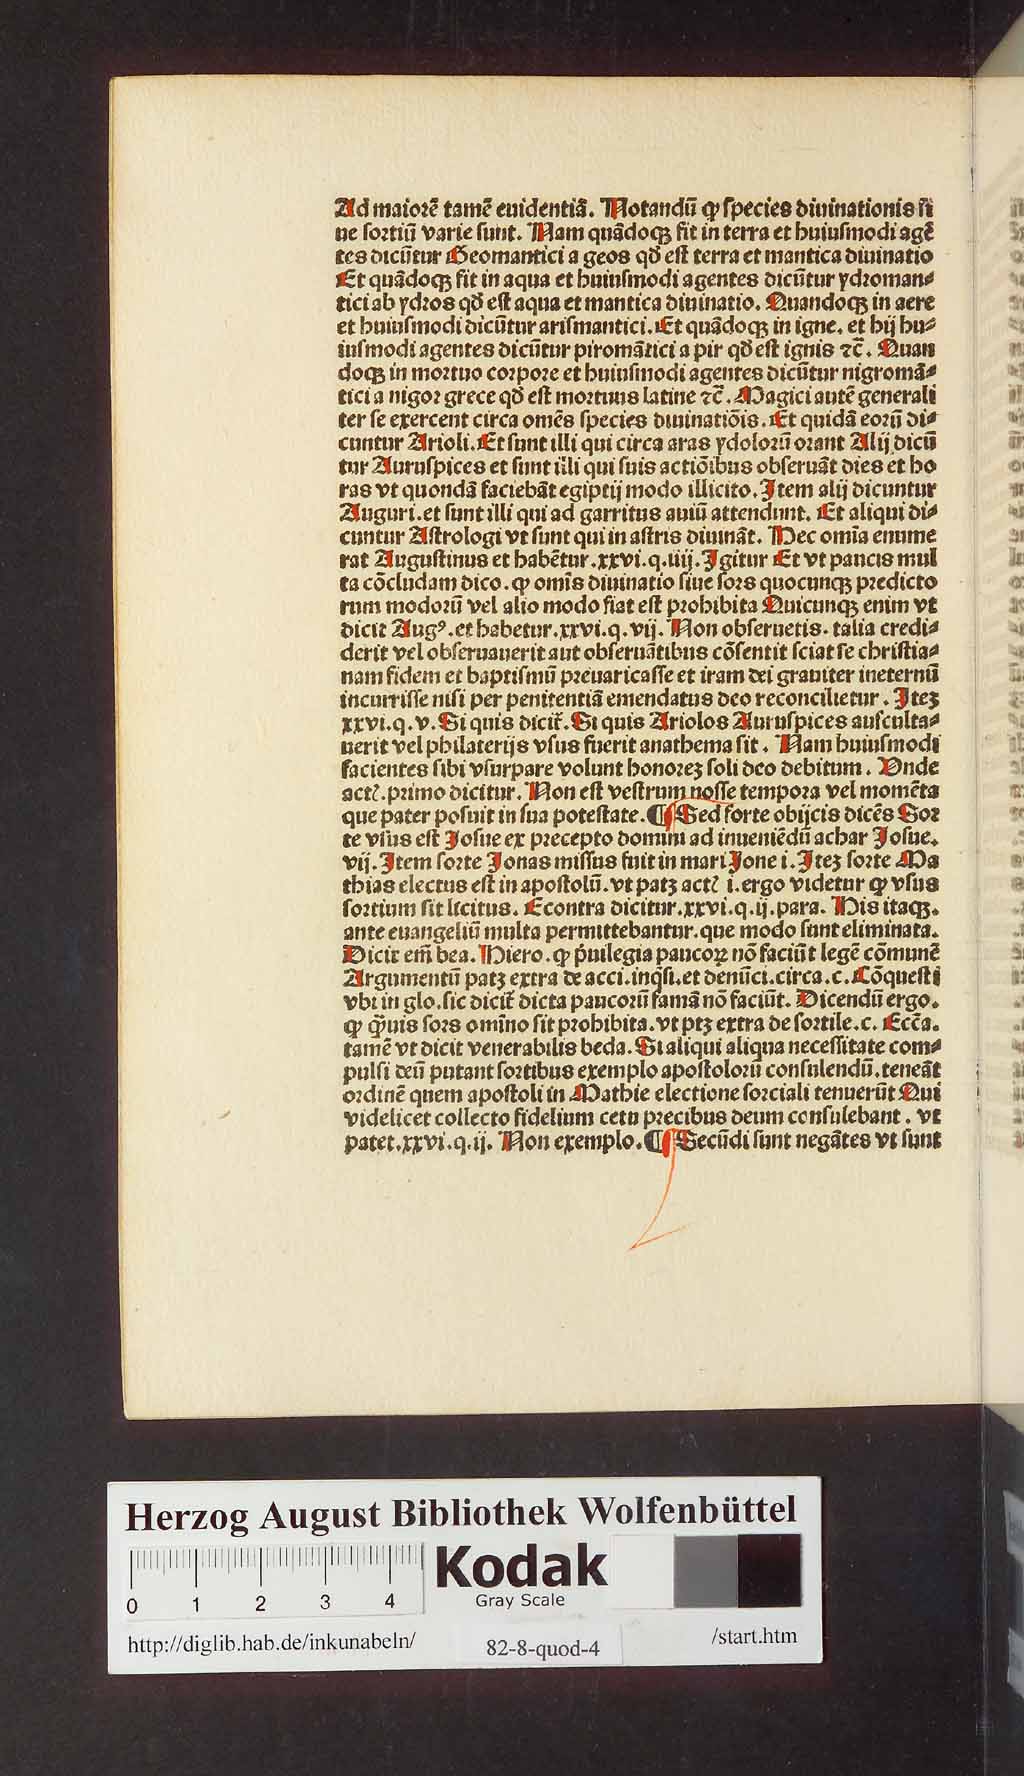 Ad maiorē tamē euidentiā. Notandū ꝙ species diuinationis si
ue sortiū varie sunt. Nam quādoqꝫ fit in terra et huiusmodi agē
tes dicūtur Geomantici a geos qđ est terra et mantica diuinatio
Et quādoqꝫ fit in aqua et huiusmodi agentes dicūtur ydroman⸗
tici ab ydros qđ est aqua et mantica diuinatio. Quandoqꝫ in aere
et huiusmodi dicūtur arismantici. Et quādoqꝫ in igne. et hij hu⸗
iusmodi agentes dicūtur piromātici a pir qđ est ignis ⁊c̄. Quan
doqꝫ in mortuo corpore et huiusmodi agentes dicūtur nigromā⸗
tici a nigor grece qđ est mortuus latine ⁊c̄. Magici autē generali
ter se exercent circa omēs species diuinatiōis. Et quidā eorū di⸗
cuntur Arioli. Et sunt illi qui circa aras ydolorū orant Alij dicū
tur Auruspices et sunt illi qui suis actiōibus obseruāt dies et ho
ras vt quondā faciebāt egiptij modo illicito. Item alij dicuntur
Auguri. et sunt illi qui ad garritus auiū attendunt. Et aliqui di⸗
cuntur Astrologi vt sunt qui in astris diuināt. Hec omīa enume
rat Augustinus et habētur. xxvi. q. iiij. Igitur Et vt paucis mul
ta cōcludam dico. ꝙ omīs diuinatio siue sors quocunqꝫ predicto
rum modorū vel alio modo fiat est prohibita Quicunqꝫ enim vt
dicit Augꝰ. et habetur. xxvi. q. vij. Non obseruetis. talia credi⸗
derit vel obseruauerit aut obseruātibus cōsentit sciat se christia⸗
nam fidem et baptismū preuaricasse et iram dei grauiter ineternū
incurrisse nisi per penitentiā emendatus deo reconcilietur. Iteꝫ
xxvi. q. v. Si quis dicit̄. Si quis Ariolos Auruspices ausculta⸗
uerit vel philaterijs vsus fuerit anathema sit. Nam huiusmodi
facientes sibi vsurpare volunt honoreꝫ soli deo debitum. Vnde
actꝭ. primo dicitur. Non est vestrum nosse tempora vel momēta
que pater posuit in sua potestate. ¶ Sed forte obijcis dicēs Sor
te vsus est Josue ex precepto domini ad inueniēdū achar Josue.
vij. Item sorte Jonas missus fuit in mari Jone i. Iteꝫ sorte Ma
thias electus est in apostolū. vt patꝫ actꝭ i. ergo videtur ꝙ vsus
sortium sit licitus. Econtra dicitur. xxvi. q. ij. para. His itaqꝫ.
ante euangeliū multa permittebantur. que modo sunt eliminata.
Dicit em̄ bea. Hiero. ꝙ p̄uilegia paucoꝝ nō faciūt legē cōmunē
Argumentū patꝫ extra de acci. inq̄si. et denūci. circa. c. Cōquesti
vbi in glo. sic dicit̄ dicta paucorū famā nō faciūt. Dicendū ergo.
ꝙ q̄uis sors omīno sit prohibita. vt ptꝫ extra de sortile. c. Eccā.
tamē vt dicit venerabilis beda. Si aliqui aliqua necessitate com⸗
pulsi deū putant sortibus exemplo apostolorū consulendū. teneāt
ordinē quem apostoli in Mathie electione sorciali tenuerūt Qui
videlicet collecto fidelium cetu precibus deum consulebant. vt
patet. xxvi. q. ij. Non exemplo. ¶ Secūdi sunt negātes vt sunt
Herzog August Bibliothek Wolfenbüttel
0 1 2 3 4
Kodak
Gray Scale
http://diglib.hab.de/inkunabeln/ 82-8-quod-4 /start.htm